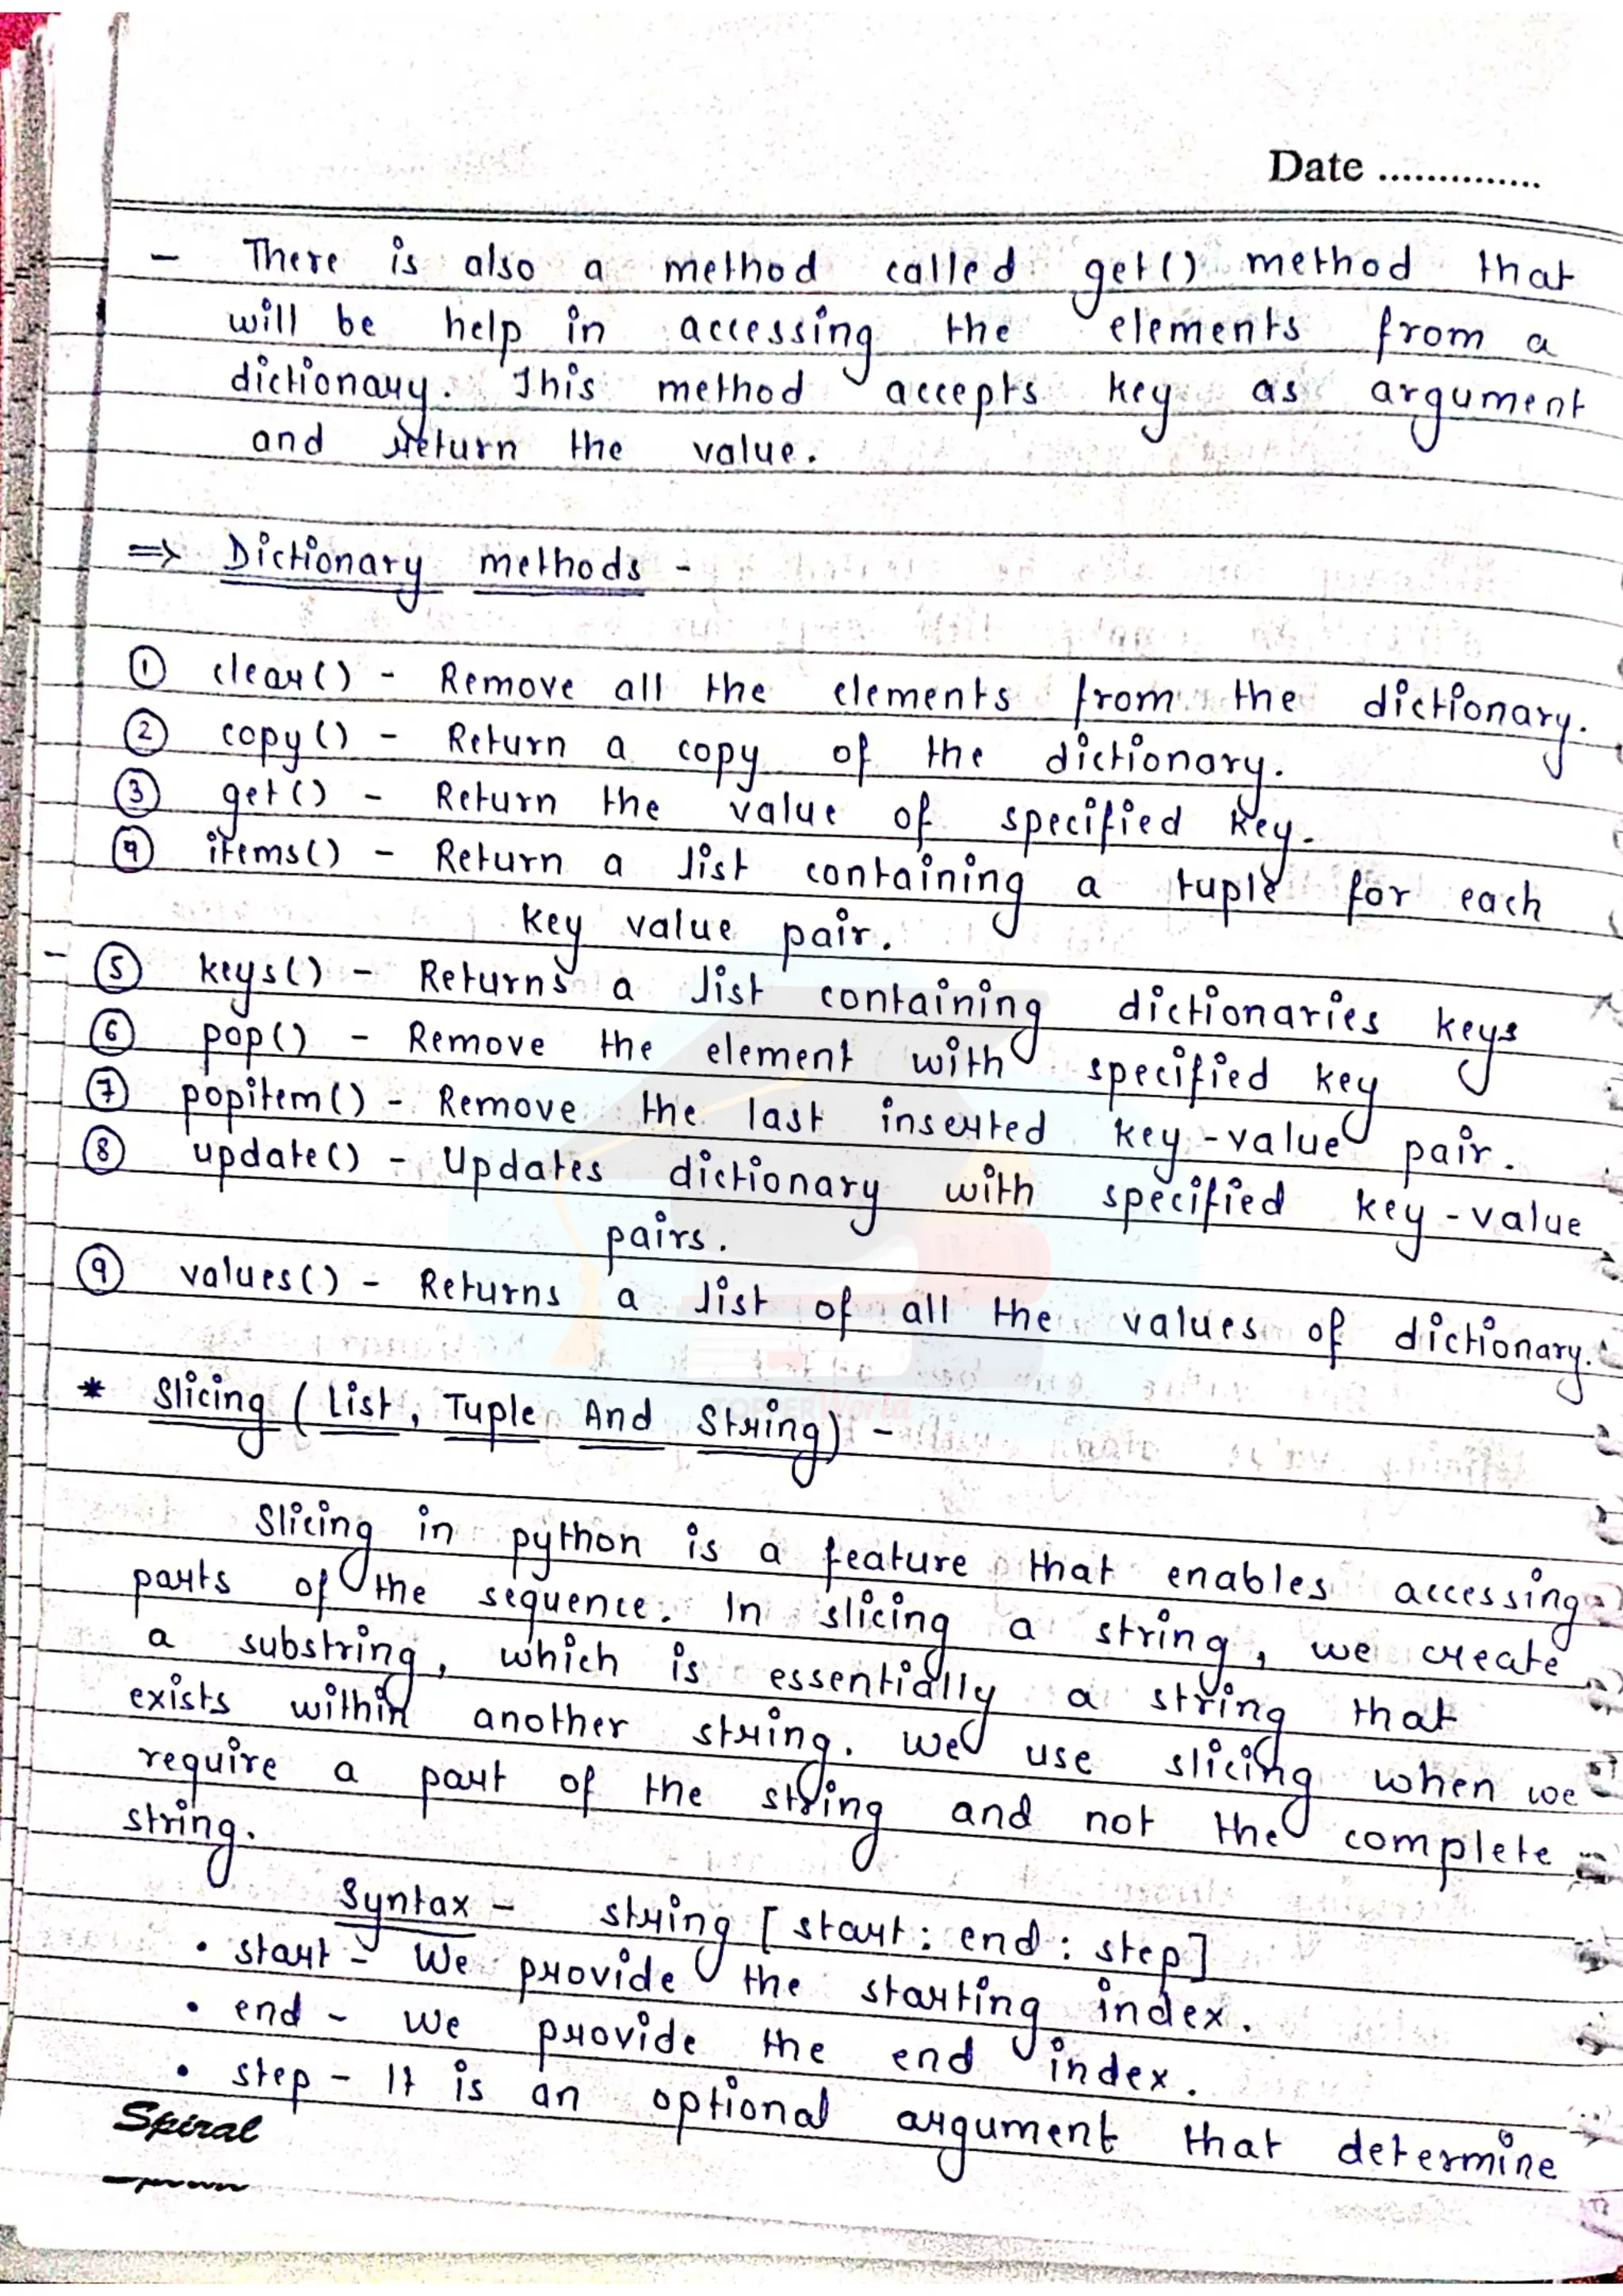 Date ..............
- There is also a method called get() method that
will be help in accessing the elements from a
dictionary. This method accepts key as argument
and return the value.
=> Dictionary methods -
① clear() - Remove all the elements from the dictionary.
② copy() - Return a copy of the dictionary.
③ get() - Return the value of specified key.
④ items() - Return a list containing a tuple for each
key value pair.
- ⑤ keys() - Returns a list containing dictionaries keys
⑥ pop() - Remove the element with specified key
⑦ popitem() - Remove the last inserted key-value pair.
⑧ update() - Updates dictionary with specified key-value
pairs.
⑨ values() - Returns a list of all the values of dictionary.
TOPPERWorld
* Slicing (List, Tuple And String) -
Slicing in python is a feature that enables accessing
parts of the sequence. In slicing a string, we create
a substring, which is essentially a string that
exists within another string. We use slicing when we
require a part of the string and not the complete
string.
Syntax - string [start : end : step]
• start - We provide the starting index.
• end - We provide the end index.
• step - It is an optional argument that determine
Spiral